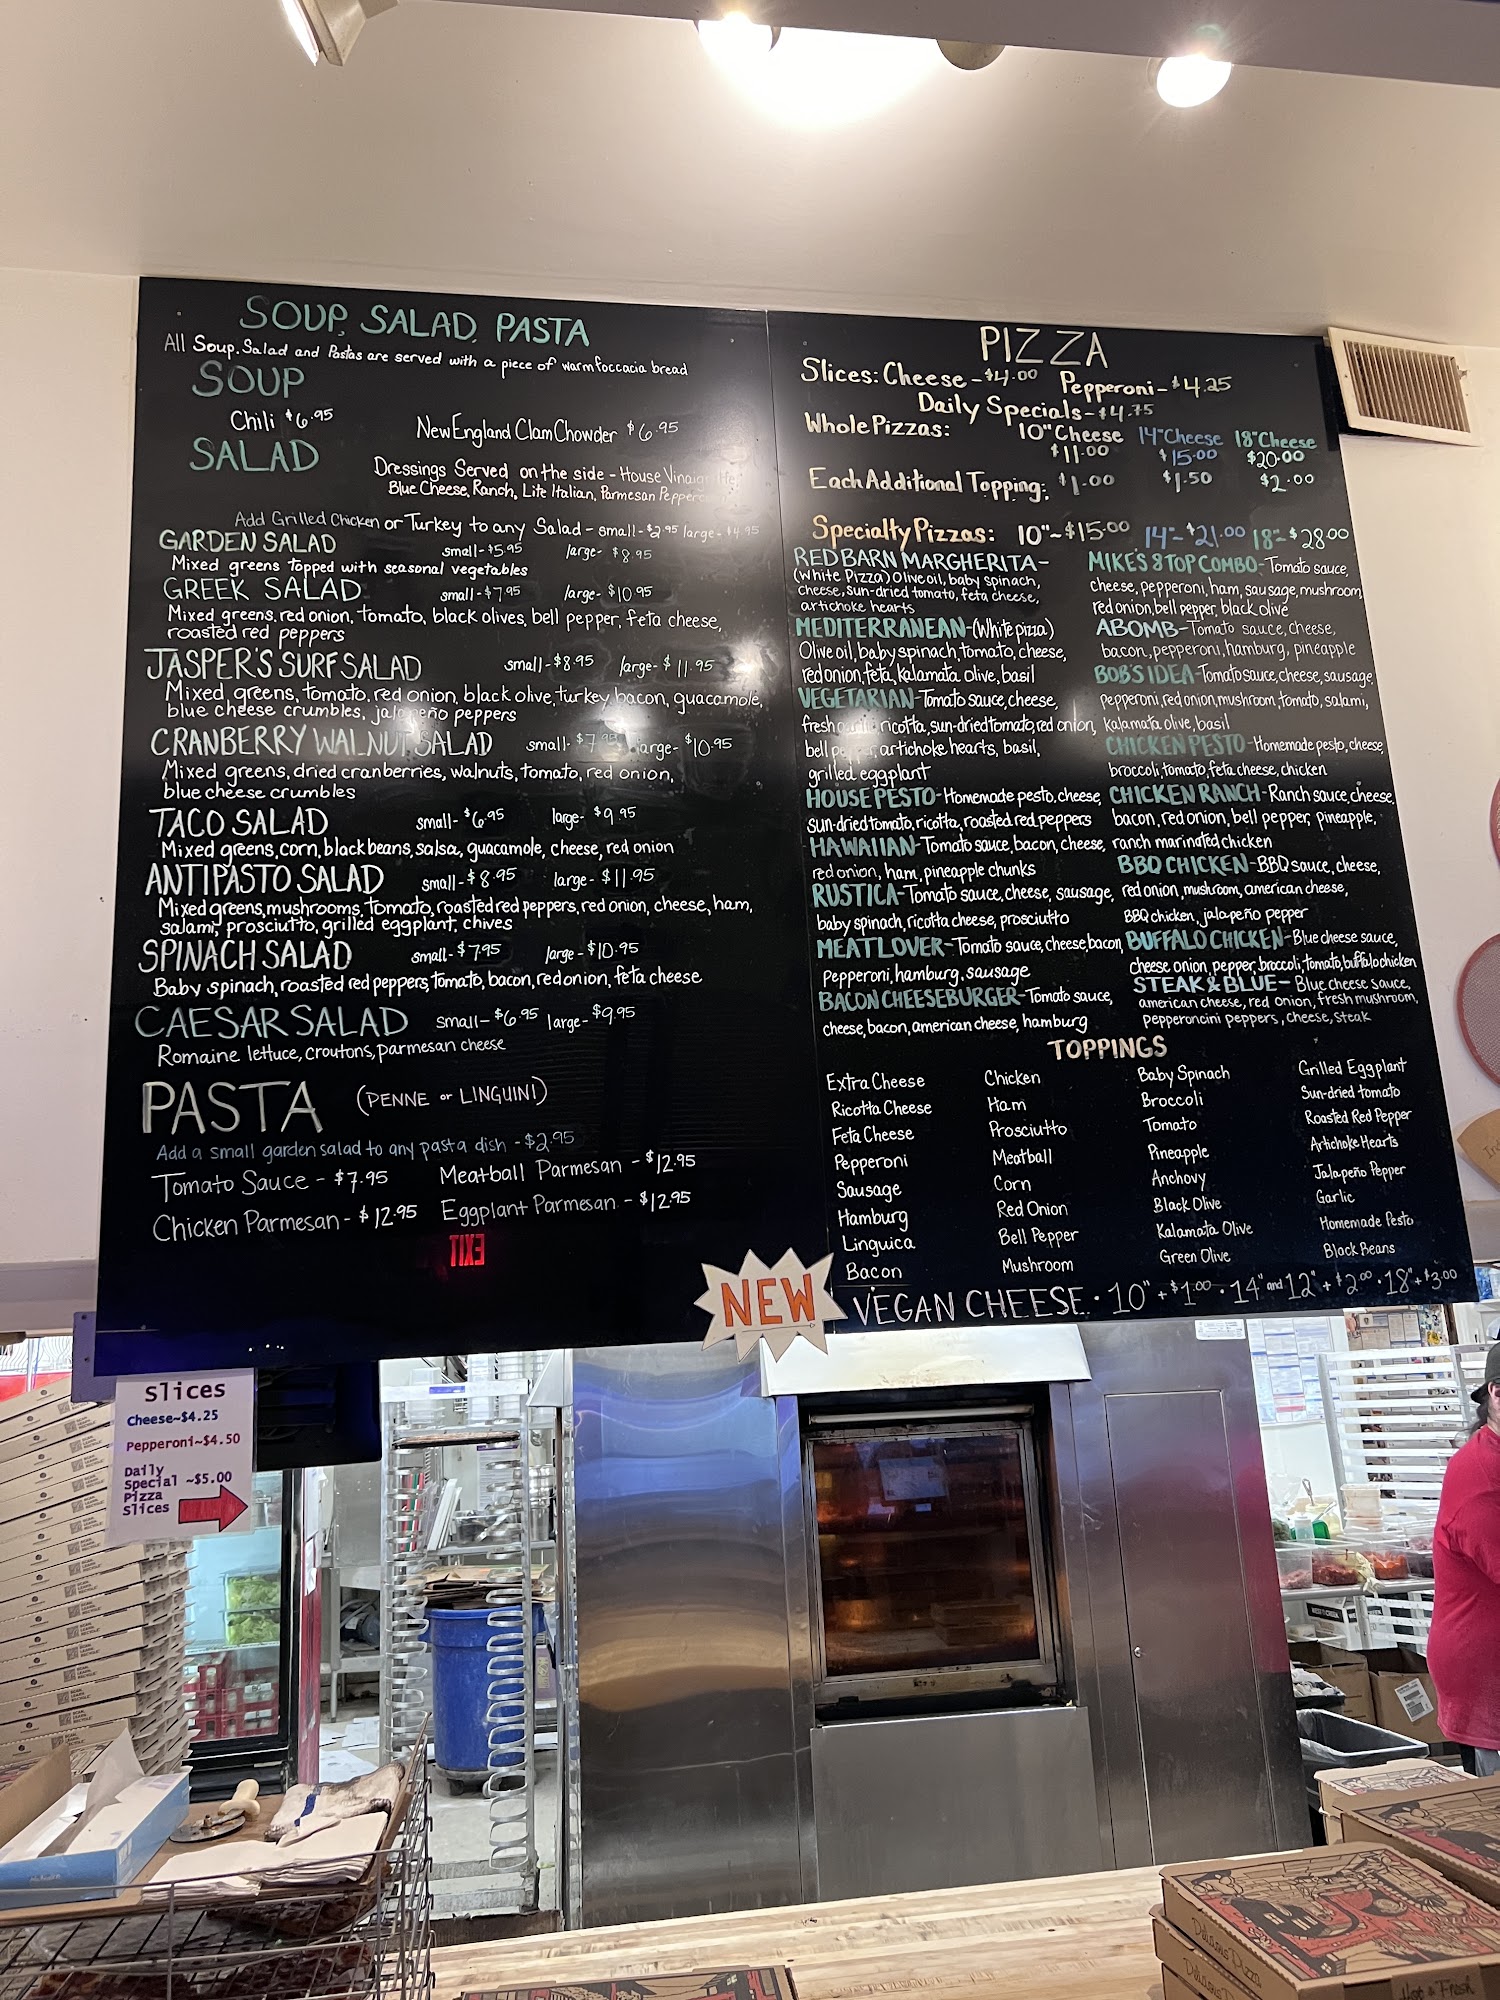 SOUP, SALAD, PASTA
All Soup, Salad and Pastas are served with a piece of warm foccacia bread
SOUP
Chili $6.95
New England Clam Chowder $6.95
SALAD
Dressings Served on the side - House
Blue Cheese, Ranch, Lite Italian, Parmesan
Add Grilled Chicken or Turkey to any Salad - small-$2.95 large-$4.95
GARDEN SALAD small-$5.95 large-$8.95
Mixed greens topped with seasonal vegetables
GREEK SALAD small-$7.95 large-$10.95
Mixed greens, red onion, tomato, black olives, bell pepper, feta cheese,
roasted red peppers
JASPER'S SURF SALAD small-$8.95 large-$11.95
Mixed, greens, tomato, red onion, black olive, turkey, bacon, guacamole,
blue cheese crumbles, jalapeño peppers
CRANBERRY WALNUT SALAD small- large-$10.95
Mixed greens, dried cranberries, walnuts, tomato, red onion,
blue cheese crumbles
TACO SALAD small-$6.95 large-$9.95
Mixed greens, corn, black beans, salsa, guacamole, cheese, red onion
ANTIPASTO SALAD small-$8.95 large-$11.95
Mixed greens, mushrooms, tomato, roasted red peppers, red onion, cheese, ham,
salami, prosciutto, grilled eggplant, chives
SPINACH SALAD small-$7.95 large-$10.95
Baby spinach, roasted red peppers, tomato, bacon, red onion, feta cheese
CAESAR SALAD small-$6.95 large-$9.95
Romaine lettuce, croutons, parmesan cheese
PASTA (PENNE or LINGUINI)
Add a small garden salad to any pasta dish - $2.95
Tomato Sauce - $7.95 Meatball Parmesan - $12.95
Chicken Parmesan - $12.95 Eggplant Parmesan - $12.95
EXIT
PIZZA
Slices: Cheese - $4.00 Pepperoni - $4.25
Daily Specials - $4.75
Whole Pizzas: 10" Cheese 14" Cheese 18" Cheese
$11.00 $15.00 $20.00
Each Additional Topping: $1.00 $1.50 $2.00
Specialty Pizzas: 10"~$15.00 14"~$21.00 18"~$28.00
RED BARN MARGHERITA-
(White Pizza) Olive oil, baby spinach,
cheese, sun-dried tomato, feta cheese,
artichoke hearts
MEDITERRANEAN-(White pizza)
Olive oil, baby spinach, tomato, cheese,
red onion, feta, kalamata olive, basil
VEGETARIAN-Tomato sauce, cheese,
fresh garlic, ricotta, sun-dried tomato, red onion,
bell pepper, artichoke hearts, basil,
grilled eggplant
HOUSE PESTO-Homemade pesto, cheese,
sun-dried tomato, ricotta, roasted red peppers
HAWAIIAN-Tomato sauce, bacon, cheese,
red onion, ham, pineapple chunks
RUSTICA-Tomato sauce, cheese, sausage,
baby spinach, ricotta cheese, prosciutto
MEATLOVER-Tomato sauce, cheese, bacon,
Pepperoni, hamburg, sausage
BACON CHEESEBURGER-Tomato sauce,
cheese, bacon, american cheese, hamburg
MIKE'S 8 TOP COMBO-Tomato sauce,
cheese, pepperoni, ham, sausage, mushroom,
red onion, bell pepper, black olive
ABOMB-Tomato sauce, cheese,
bacon, pepperoni, hamburg, pineapple
BOB'S IDEA-Tomato sauce, cheese, sausage,
pepperoni, red onion, mushroom, tomato, salami,
kalamata olive, basil
CHICKEN PESTO-Homemade pesto, cheese,
broccoli, tomato, feta cheese, chicken
CHICKEN RANCH-Ranch sauce, cheese,
bacon, red onion, bell pepper, pineapple,
ranch marinated chicken
BBQ CHICKEN-BBQ sauce, cheese,
red onion, mushroom, american cheese,
BBQ chicken, jalapeño pepper
BUFFALO CHICKEN-Blue cheese sauce,
cheese, onion, pepper, broccoli, tomato, buffalo chicken
STEAK & BLUE- Blue cheese sauce,
american cheese, red onion, fresh mushroom,
pepperoncini peppers, cheese, steak
TOPPINGS
Extra Cheese Chicken Baby Spinach Grilled Eggplant
Ricotta Cheese Ham Broccoli Sun-dried tomato
Feta Cheese Prosciutto Tomato Roasted Red Pepper
Pepperoni Meatball Pineapple Artichoke Hearts
Sausage Corn Anchovy Jalapeño Pepper
Hamburg Red Onion Black Olive Garlic
Linguica Bell Pepper Kalamata Olive Homemade Pesto
Bacon Mushroom Green Olive Black Beans
NEW VEGAN CHEESE • 10" + $1.00 • 14" and 12" + $2.00 • 18" + $3.00
Slices
Cheese~$4.25
Pepperoni~$4.50
Daily
Special ~$5.00
Pizza
Slices
Hot & Fresh